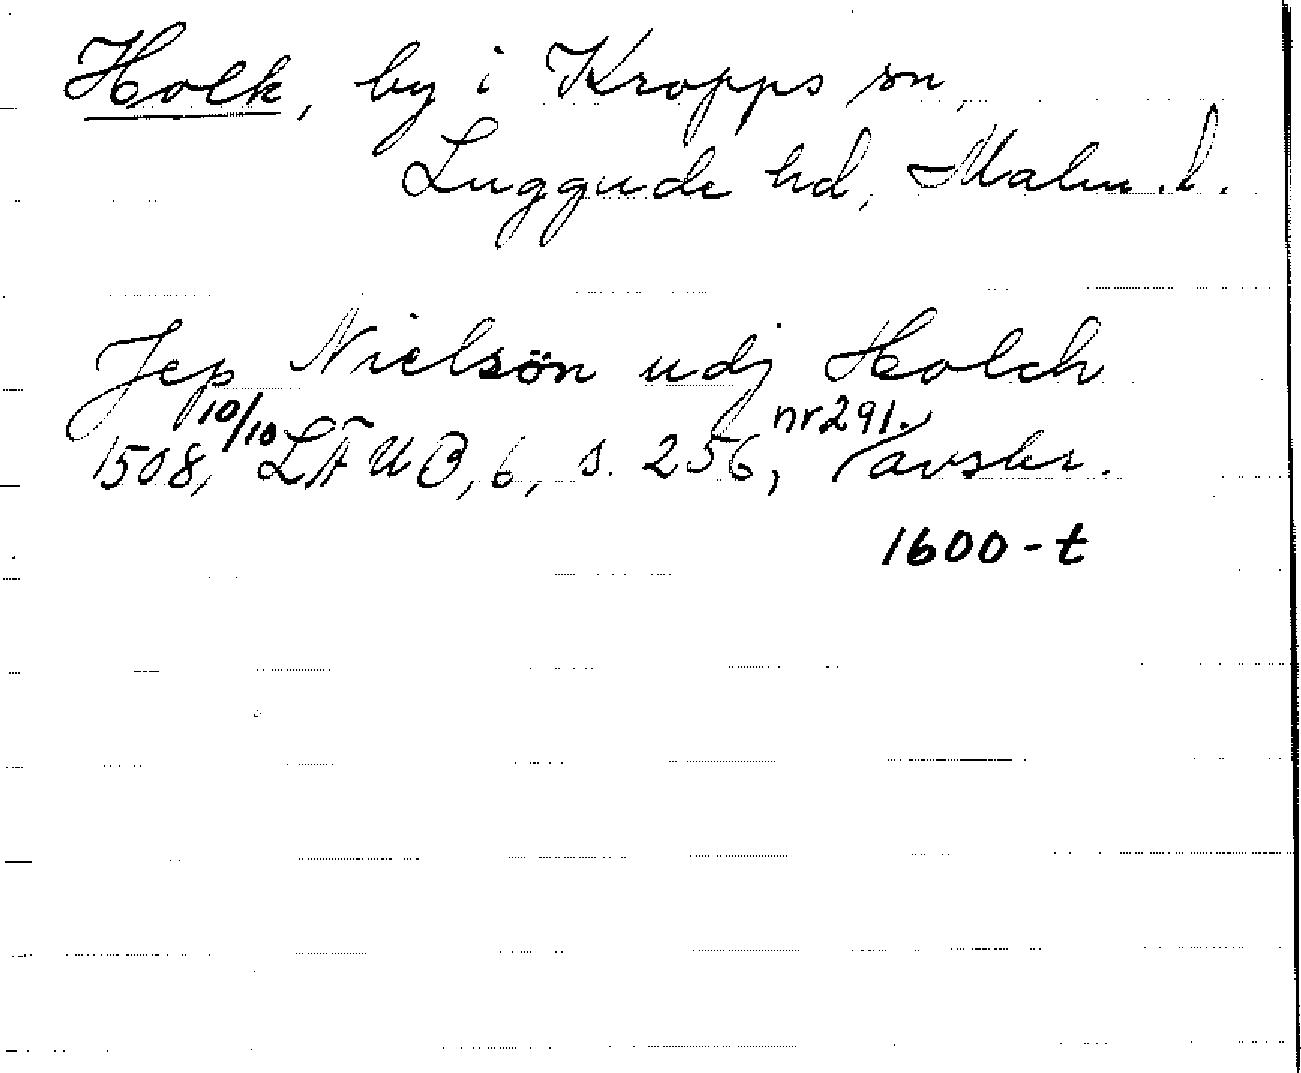 Holk, by i Kropps sn,
Luggude hd, Malm. l.
Jep Nielsön udj Holch
1508, 10/10 LÄUB, 6, s. 256, nr 291. avskr.
1600-t